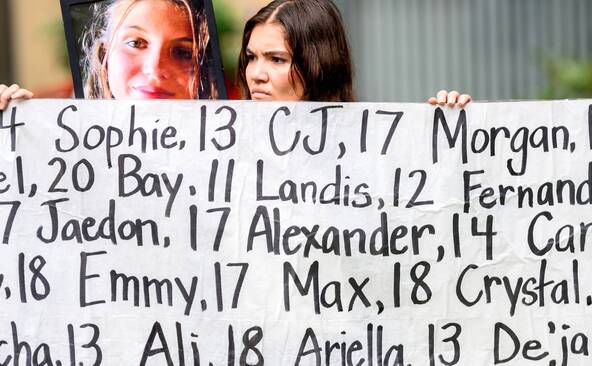 4 Sophie, 13 CJ, 17 Morgan, 1
el, 20 Bay, 11 Landis, 12 Fernand
7 Jaedon, 17 Alexander, 14 Car
, 18 Emmy, 17 Max, 18 Crystal,
cha, 13 Ali, 18 Ariella, 13 De'ja